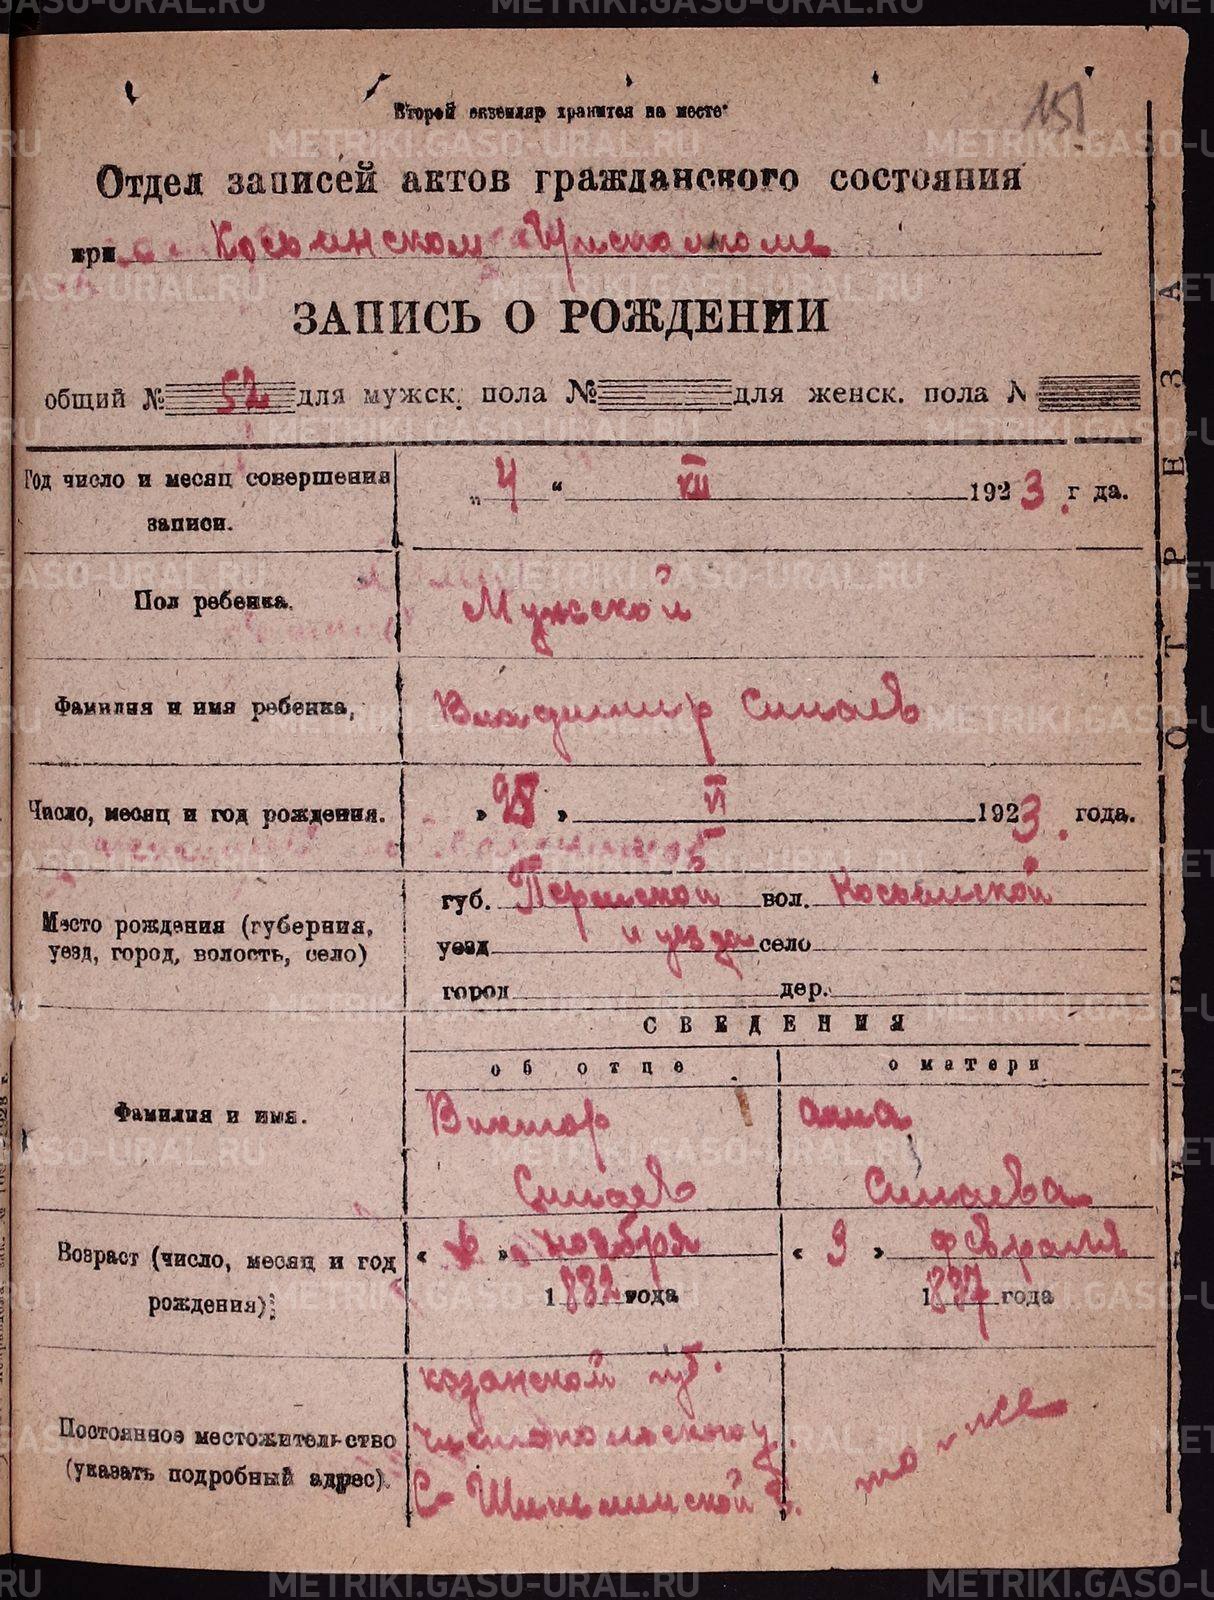 Второй екземляр хранится на месте
151
Отдел записей актов гражданского состояния
при Косьинском
ЗАПИСЬ О РОЖДЕНИИ
общий № 52 для мужск. пола № для женск. пола №
Год число и месяц совершения
записи.
„ 4 “ XII 1923 г да.
Пол ребенка.
Мужской
Фамилия и имя ребенка,
Владимир Синаев
Число, месяц и год рождения.
VI 1923 года.
Место рождения (губерния,
уезд, город, волость, село)
губ. Пермской вол.
уезд и уезда село
город дер.
СВЕДЕНИЯ
об отце
о матери
Фамилия и имя.
Виктор
Синаев
анна
Синаева
Возраст (число, месяц и год
рождения);
« » ноября
1882 года
« 3 » февраля
1887 года
Постоянное местожительство
(указать подробный адрес).
казанской губ.
то же
ОТРЕЗА
METRIKI.GASO-URAL.RU